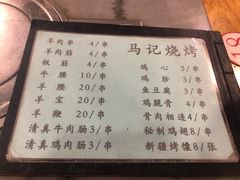 马记烧烤
羊肉串 4/串
羊肉筋 4/串
板筋 4/串
牛腰 10/串
羊腰 20/串
羊宝 20/串
羊鞭 20/串
清真牛肉肠3/串
清真鸡肉肠3/串
鸡心 3/串
鸡胗 3/串
鱼豆腐 3/串
鸡脆骨 4/串
骨肉相连 4/串
秘制鸡翅 8/串
新疆烤馕 8/张